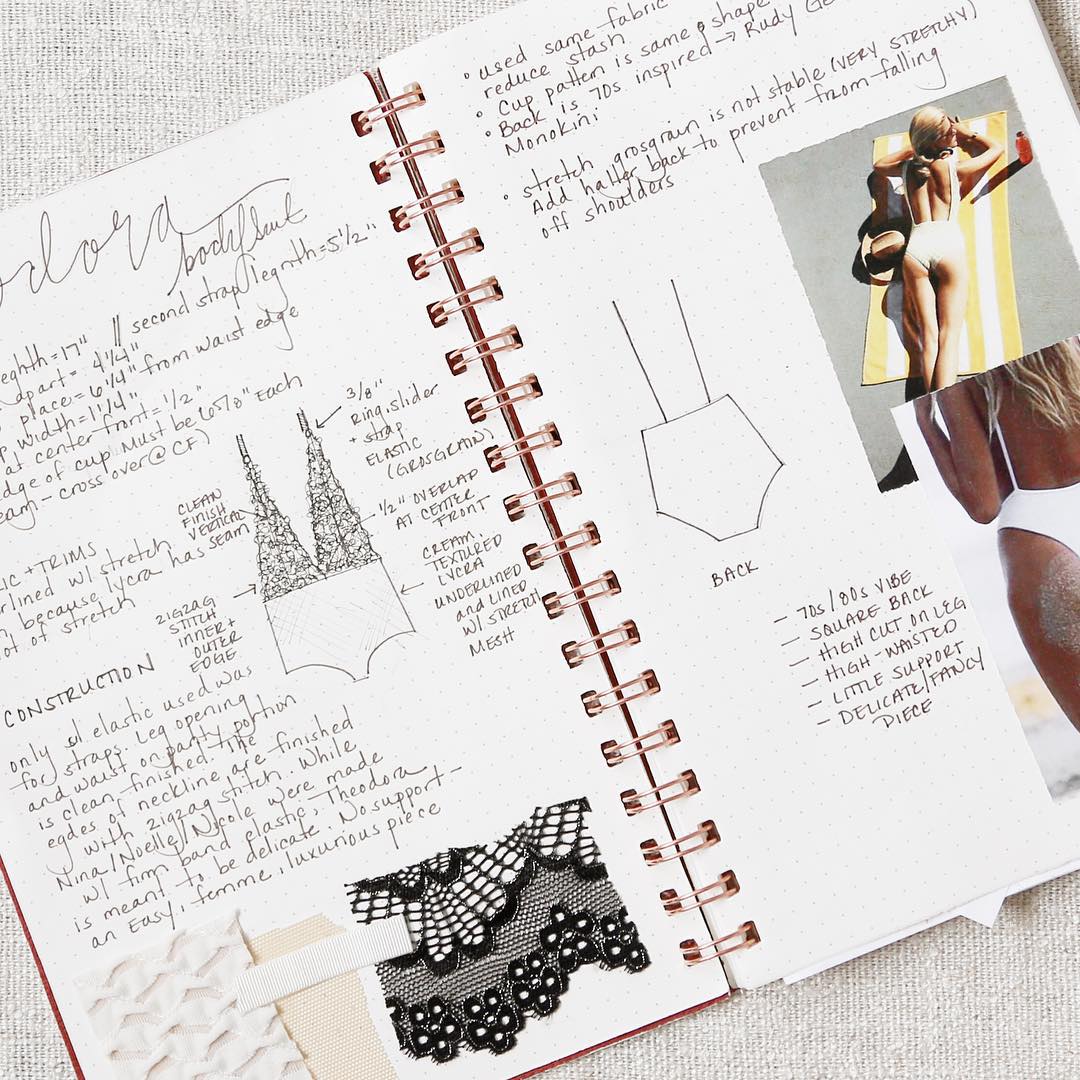 bodysuit
=17" // second strap/legnth=5 1/2"
apart= 4 1/4"
Place= 6 1/4" from waist edge
width= 1 1/4"
at center front= 1/2"
edge of cup must be 6 5/8" each
- cross over @ CF)
3/8"
Ring, slider
+ strap
ELASTIC
(GROSGRAIN)
CLEAN
FINISH
VERTICAL
SEAM
1/2" OVERLAP
AT CENTER
FRONT
+TRIMS
w/ stretch
because lycra has
lot of stretch
ZIGZAG
STITCH
INNER+
OUTER
EDGE
CREAM
TEXTURED
LYCRA
UNDERLINED
and LINED
W/ STRETCH
MESH
CONSTRUCTION
only elastic used was
for straps. Leg opening
and waist on panty portion
is clean finished. The
egdes of neckline are finished
with zigzag stitch. While
Nina/Noelle/Nicole were made
w/ firm band elastic, Theodora
is meant to be delicate. No support -
an easy, femme, luxurious piece
• used same fabric
reduce stash
• Cup pattern is same shape
• Back is 70s inspired → Rudy
Monokini
• stretch grosgrain is not stable (VERY STRETCHY)
Add halter back to prevent from falling
off shoulders
BACK
- 70s/80s VIBE
- SQUARE BACK
- HIGH CUT ON LEG
- HIGH-WAISTED
- LITTLE SUPPORT
- DELICATE/FANCY
PIECE